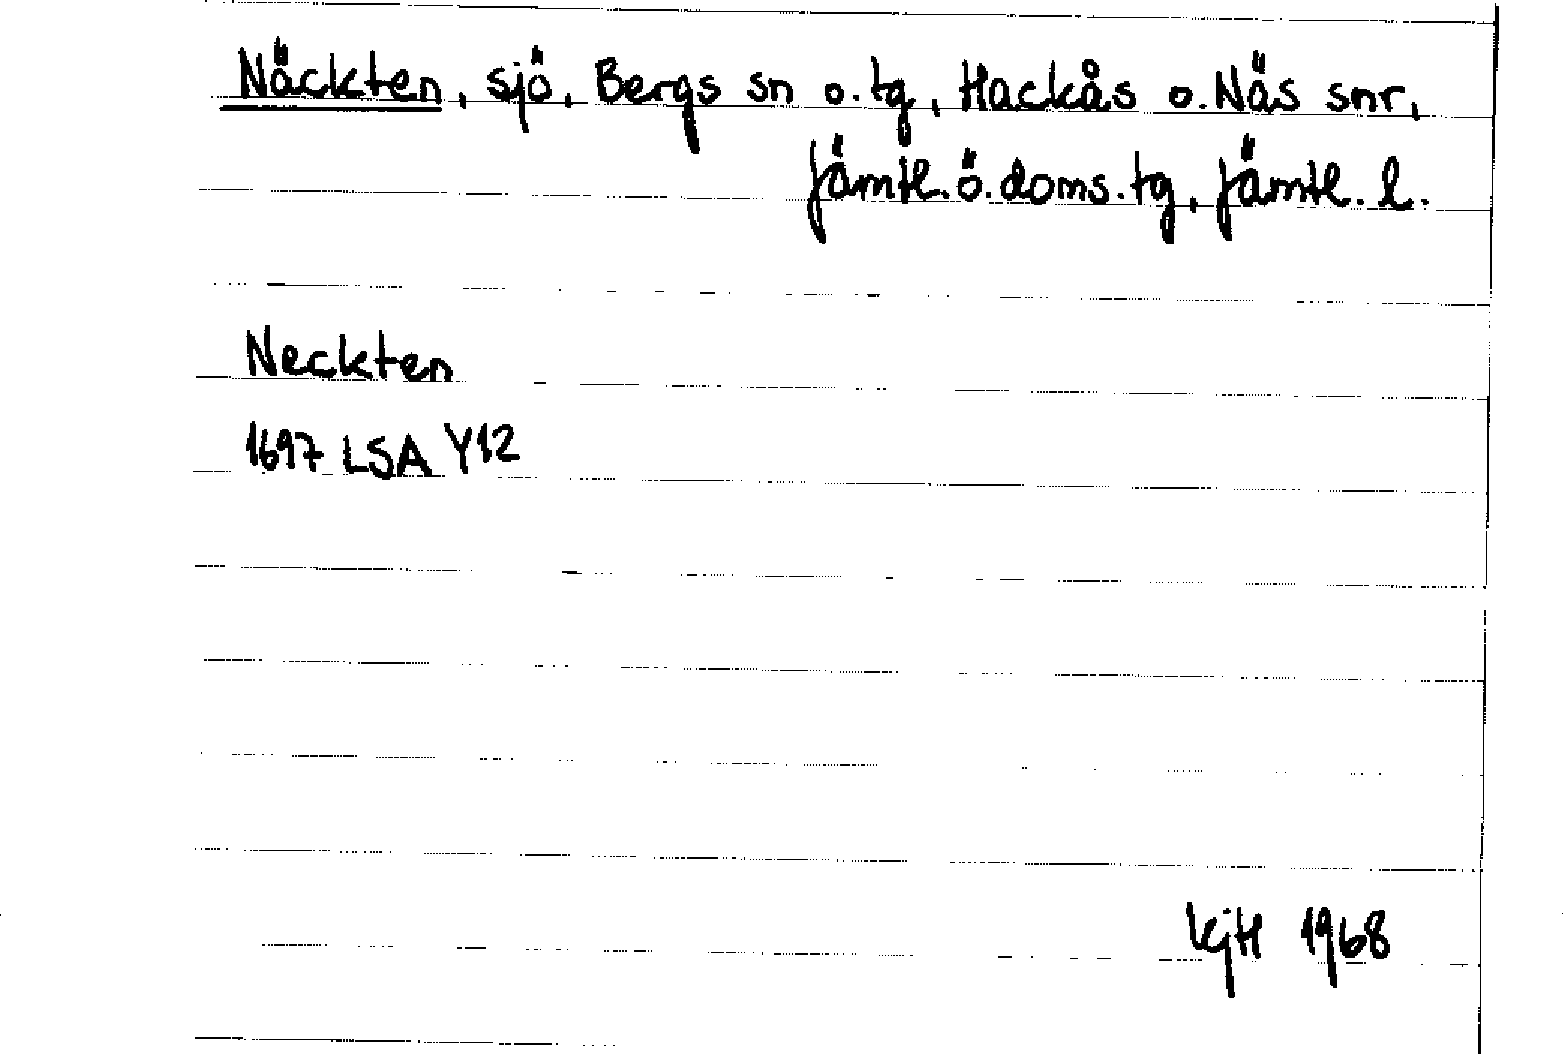 Näckten, sjö, Bergs sn o. tg, Hackås o. Näs snr,
Jämtl. ö. doms. tg, Jämtl. l.
Neckten
1697 LSA Y12
KjH 1968